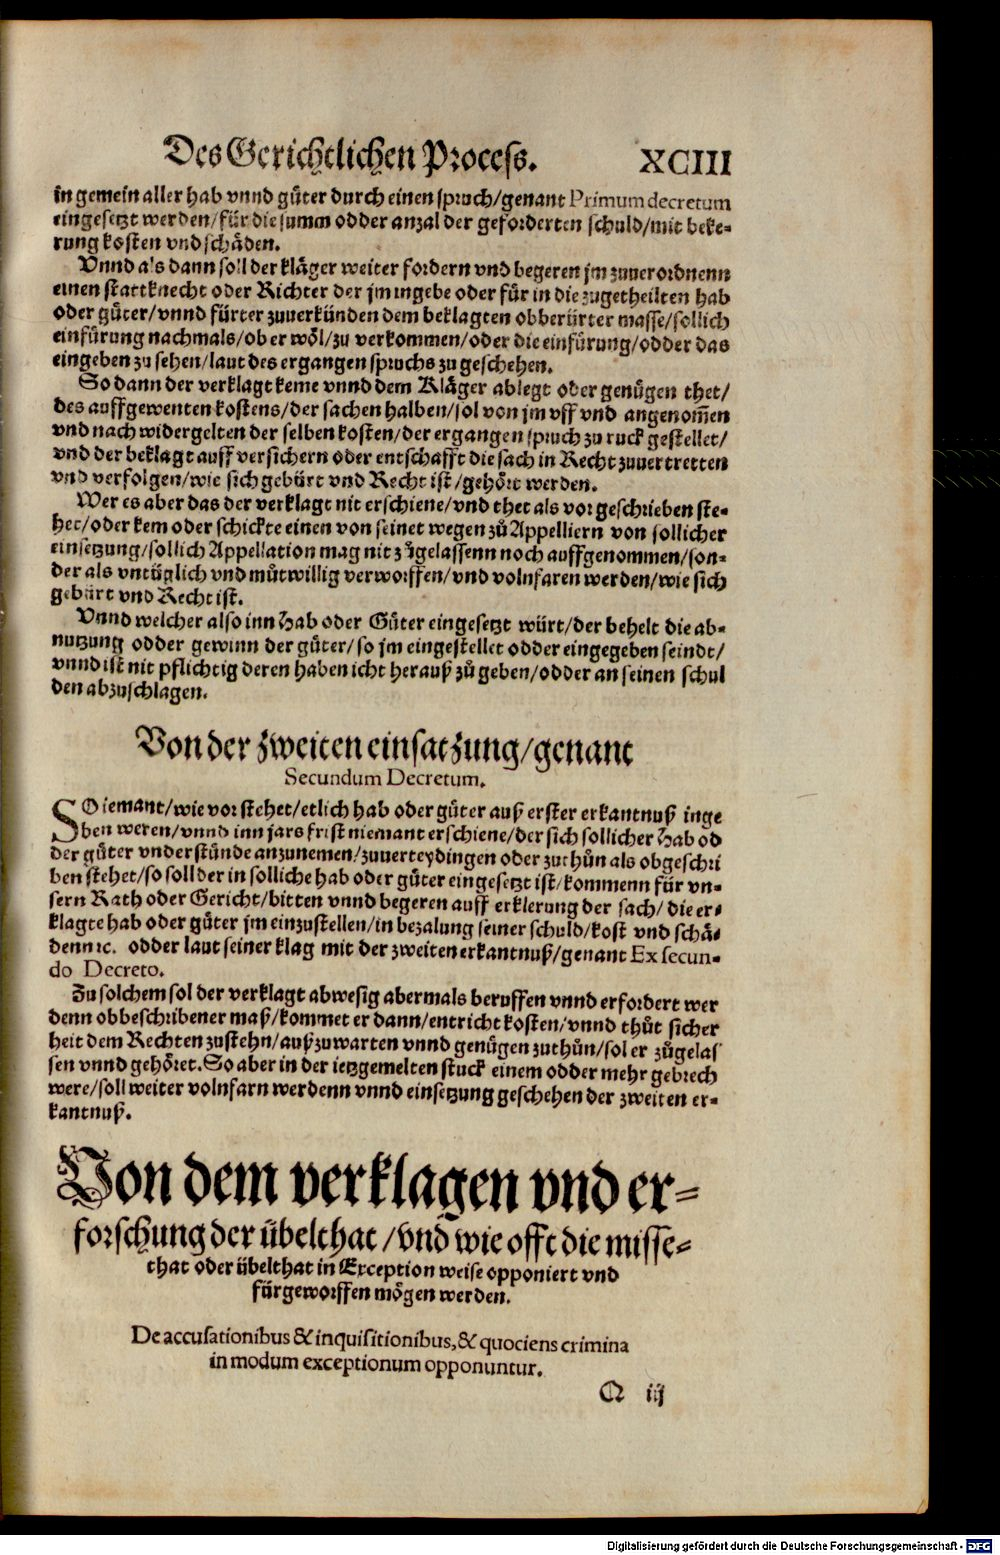 Des Gerichtlichen Process. XCIII
in gemein aller hab vnnd güter durch einen spruch/genant Primum decretum
eingesetzt werden/für die summ odder anzal der geforderten schuld/mit beke-
rung kosten vnd schäden.
Vnnd als dann soll der kläger weiter fordern vnd begeren jm zuuerordnenn
einen stattknecht oder Richter der jm ingebe oder für in die zugetheilten hab
oder güter/vnnd fürter zuuerkünden dem beklagten obberürter masse/sollich
einfürung nachmals/ob er wöl/zu verkommen/oder die einfürung/odder das
eingeben zu sehen/laut des ergangen spruchs zu geschehen.
So dann der verklagt keme vnnd dem Kläger ablegt oder genügen thet/
des auffgewenten kostens/der sachen halben/sol von jm vff vnd angenom̃en
vnd nach widergelten der selben kosten/der ergangen spruch zu ruck gestellet/
vnd der beklagt auff versichern oder entschafft die sach in Recht zuuertretten
vnd verfolgen/wie sich gebürt vnd Recht ist/gehört werden.
Wer es aber das der verklagt nit erschiene/vnd thet als vor geschrieben ste-
het/oder kem oder schickte einen von seinet wegen zů Appelliern von sollicher
einsetzung/sollich Appellation mag nit zůgelassenn noch auffgenommen/son-
der als vntüglich vnd můtwillig verworffen/vnd volnfaren werden/wie sich
gebürt vnd Recht ist.
Vnnd welcher also inn Hab oder Güter eingesetzt würt/der behelt die ab-
nutzung odder gewinn der güter/so jm eingestellet odder eingegeben seindt/
vnnd ist nit pflichtig deren haben icht herauß zů geben/odder an seinen schul
den abzuschlagen.
Von der zweiten einsatzung/genant
Secundum Decretum.
SO iemant/wie vor stehet/etlich hab oder güter auß erster erkantnuß inge
ben weren/vnnd inn jars frist niemant erschiene/der sich sollicher Hab od
der güter vnderstünde anzunemen/zuuerteydingen oder zuthůn als obgeschri
ben stehet/so soll der in solliche hab oder güter eingesetzt ist/kommenn für vn-
sern Rath oder Gericht/bitten vnnd begeren auff erklerung der sach/die er-
klagte hab oder güter jm einzustellen/in bezalung seiner schuld/kost vnd schä-
denn ꝛc. odder laut seiner klag mit der zweiten erkantnuß/genant Ex secun-
do Decreto.
Zu solchem sol der verklagt abwesig abermals beruffen vnnd erfordert wer
denn obbeschribener maß/kommet er dann/entricht kosten/vnnd thůt sicher
heit dem Rechten zustehn/außzuwarten vnnd genügen zuthůn/sol er zůgelas
sen vnnd gehöret. So aber in der ietzgemelten stuck einem odder mehr gebrech
were/soll weiter volnfarn werdenn vnnd einsetzung geschehen der zweiten er-
kantnuß.
Von dem verklagen vnd er-
forschung der übelthat/vnd wie offt die misse-
that oder übelthat in Exception weise opponiert vnd
fürgeworffen mögen werden.
De accusationibus & inquisitionibus, & quociens crimina
in modum exceptionum opponuntur.
Q iij
Digitalisierung gefördert durch die Deutsche Forschungsgemeinschaft - DFG